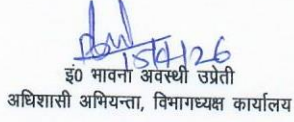 15/4/26
इं० भावना अवस्थी उप्रेती
अधिशासी अभियन्ता, विभागध्यक्ष कार्यालय